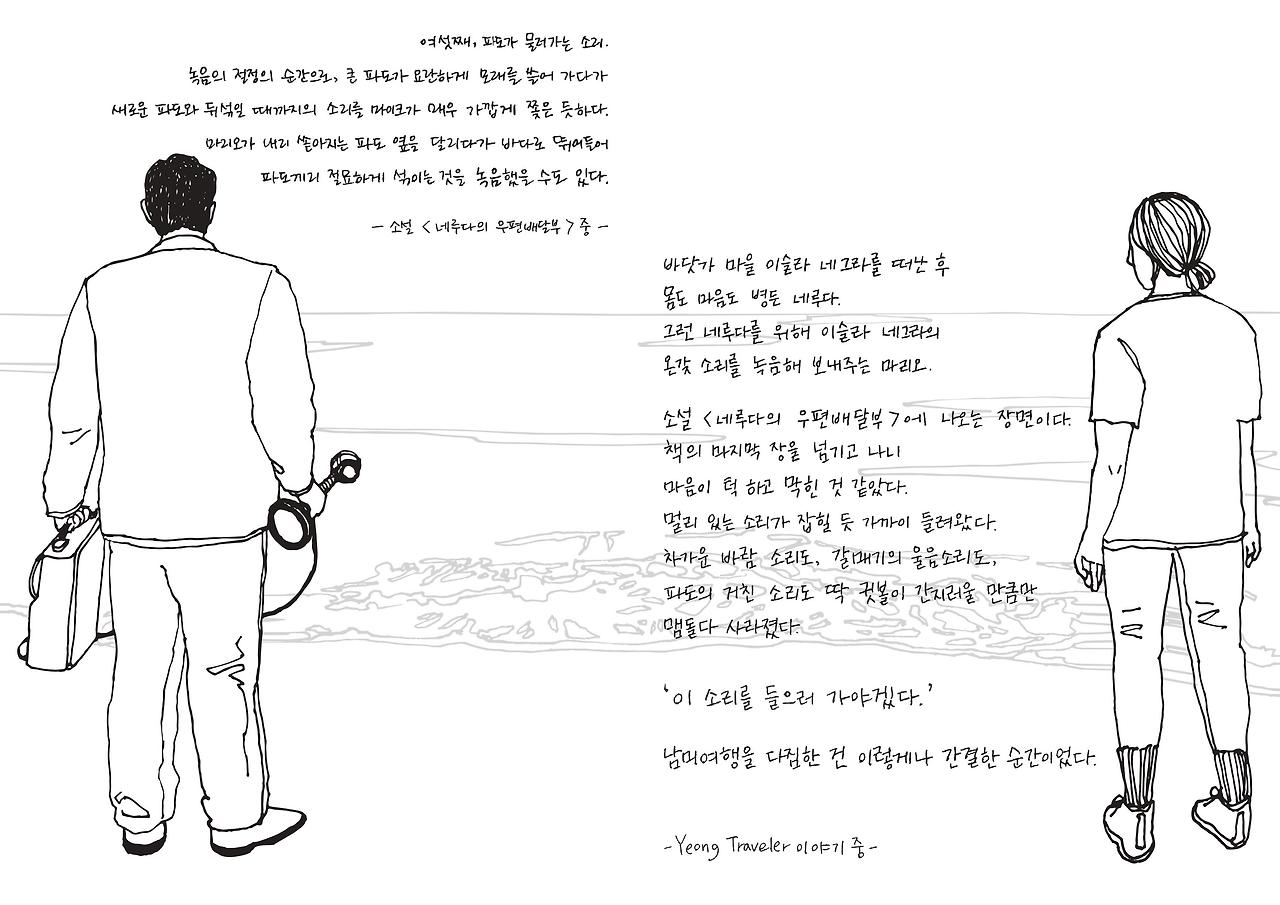 여섯째, 파도가 물러가는 소리.
녹음의 절정의 순간으로, 큰 파도가 요란하게 모래를 쓸어 가다가
새로운 파도와 뒤섞일 때까지의 소리를 마이크가 매우 가깝게 쫓은 듯하다.
마리오가 내리 쏟아지는 파도 옆을 달리다가 바다로 뛰어들어
파도끼리 절묘하게 섞이는 것을 녹음했을 수도 있다.
- 소설 <네루다의 우편배달부> 중 -
바닷가 마을 이슬라 네그라를 떠난 후
몸도 마음도 병든 네루다.
그런 네루다를 위해 이슬라 네그라의
온갖 소리를 녹음해 보내주는 마리오.
소설 <네루다의 우편배달부>에 나오는 장면이다.
책의 마지막 장을 넘기고 나니
마음이 턱 하고 막힌 것 같았다.
멀리 있는 소리가 잡힐 듯 가까이 들려왔다.
차가운 바람 소리도, 갈매기의 울음소리도,
파도의 거친 소리도 딱 귓볼이 간지러울 만큼만
맴돌다 사라졌다.
‘이 소리를 들으러 가야겠다.’
남미여행을 다짐한 건 이렇게나 간결한 순간이었다.
-Yeong Traveler 이야기 중-